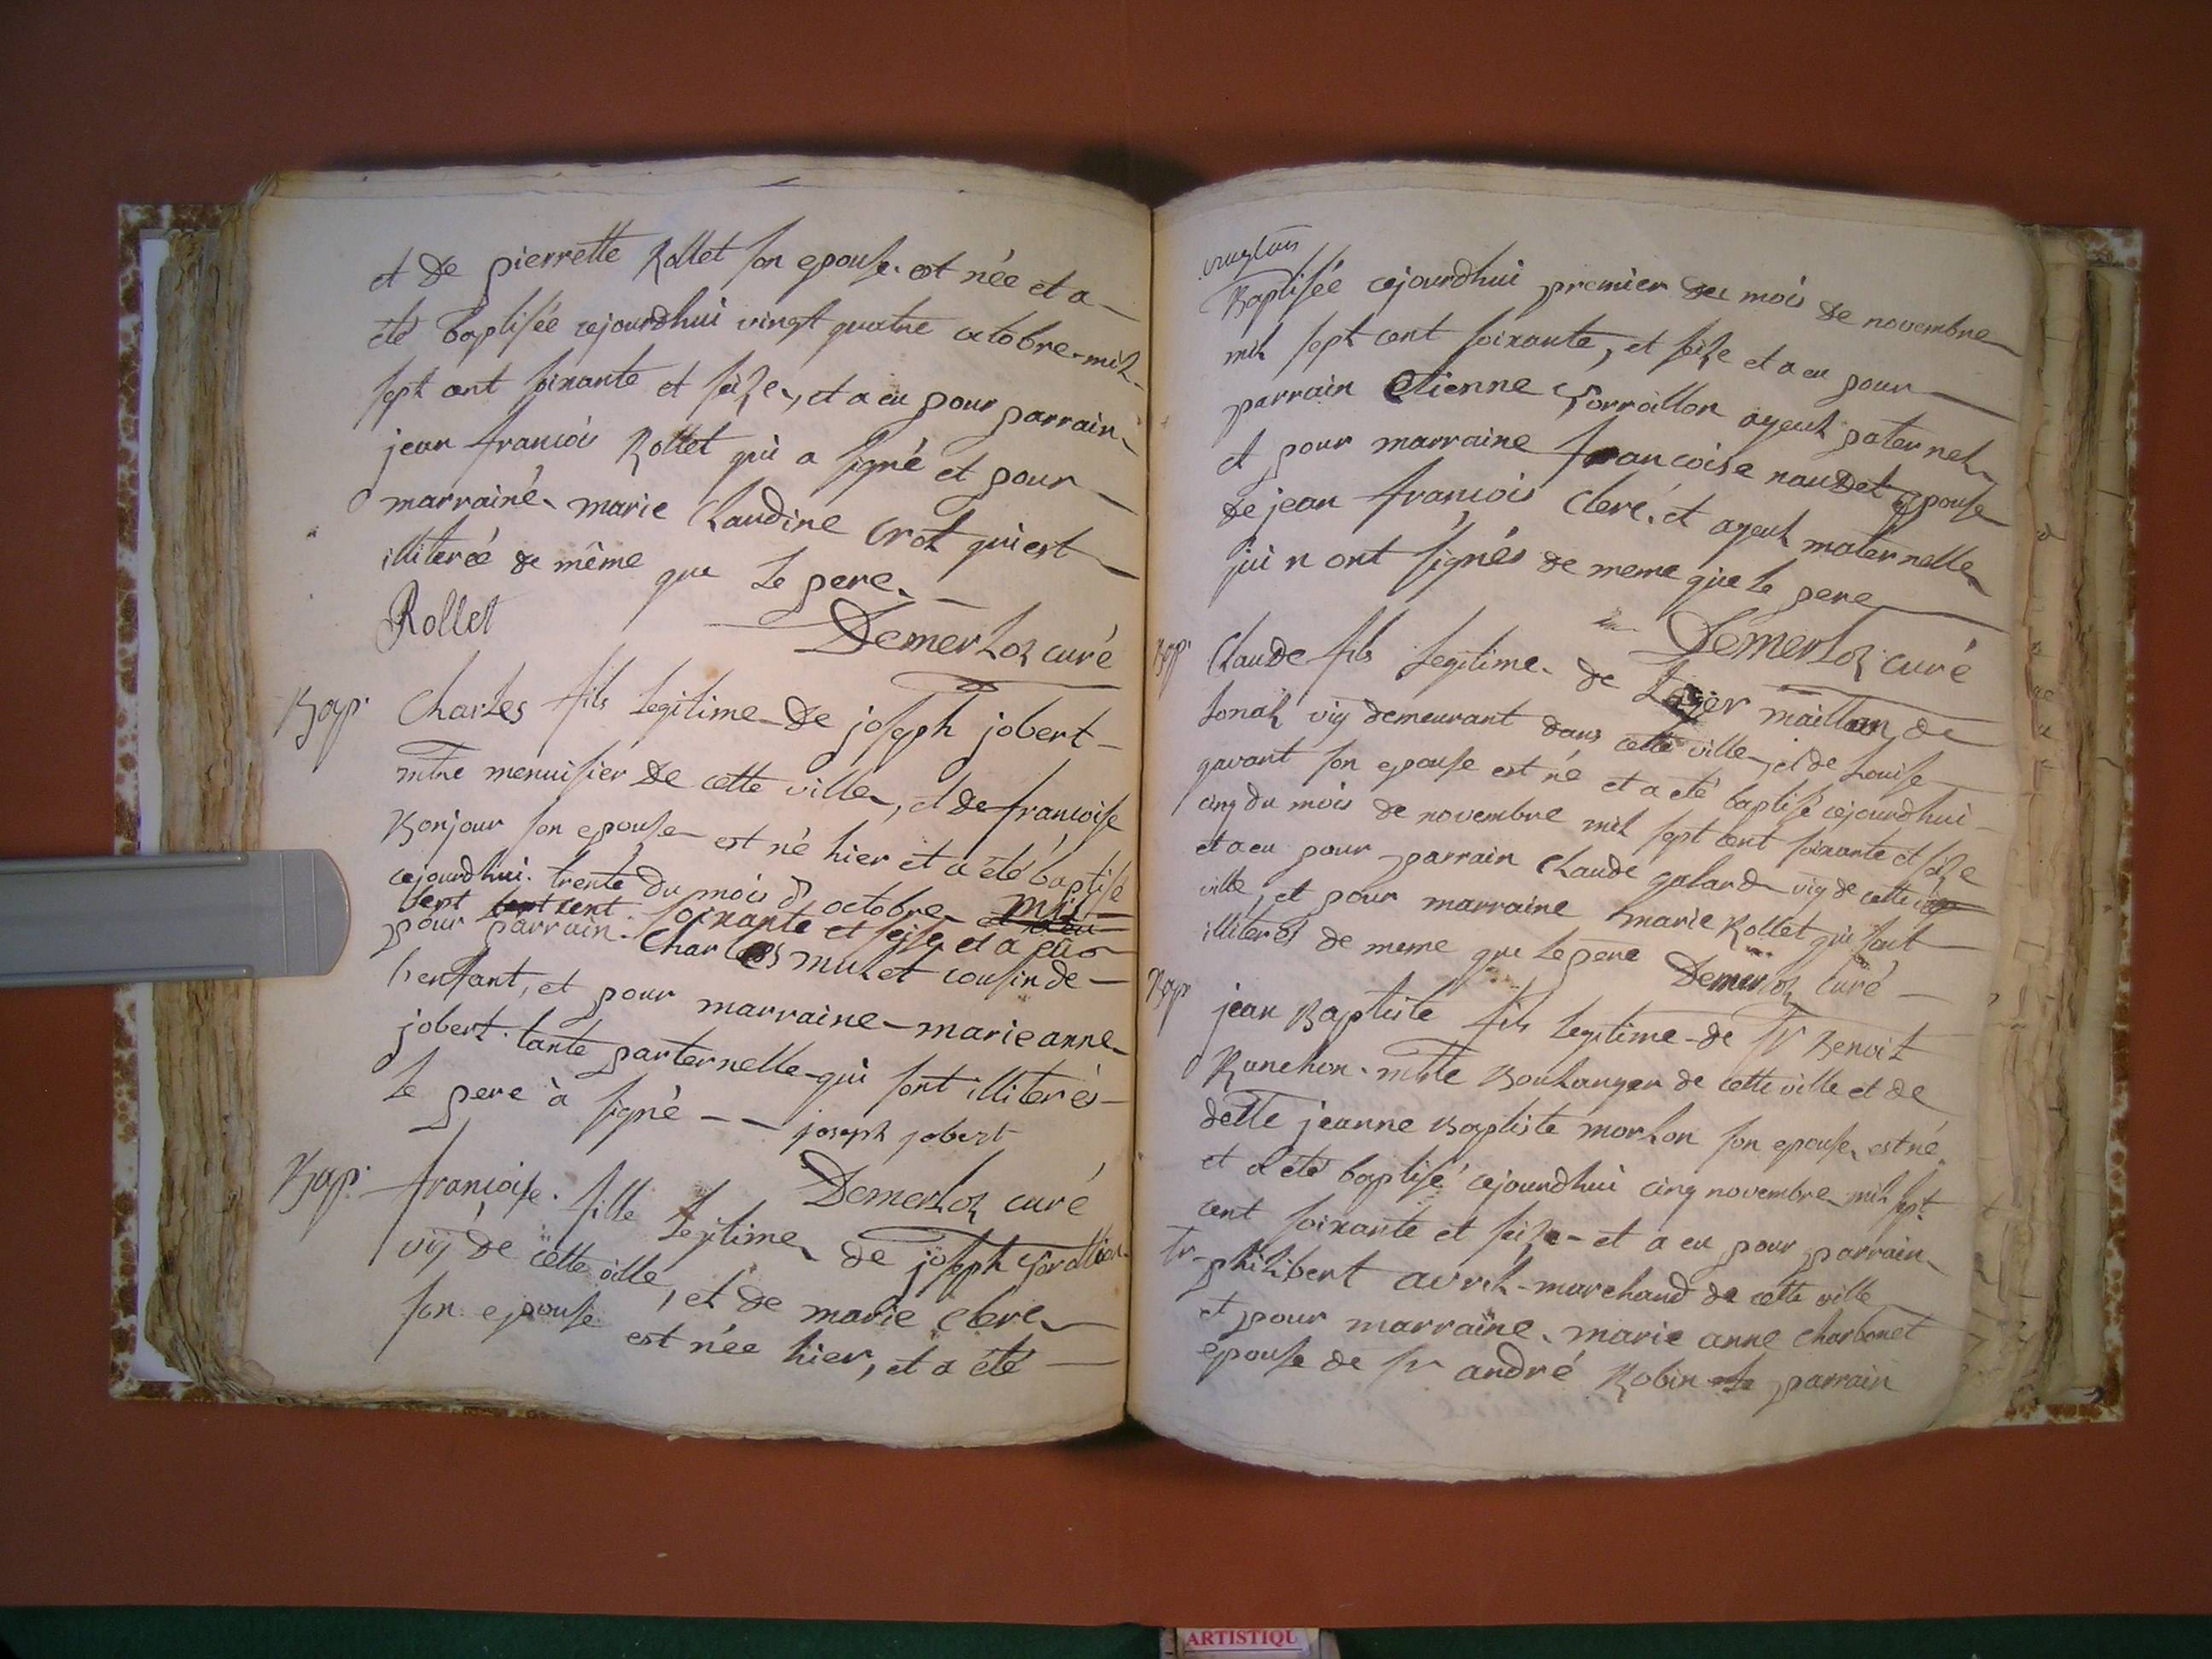 et de pierrette Rollet son epouse est née et a
été baptisée cejourdhui vingt quatre octobre mil
sept cent soixante et seize, et a eu pour parrain
jean francois Rollet qui a signé et pour
marraine marie Claudine Crot qui est
illiterée de même que le pere
Rollet Demerloz curé
Bap. Charles fils legitime de joseph jobert
mtre menuisier de cette ville, et de francoise
Bonjour son epouse est né hier et a été baptisé
cejourdhui trente du mois d octobre mil
sept cent soixante et seise et a eu
pour parrain Charles mulet cousin de
l'enfant, et pour marraine marie anne
jobert tante parternelle qui sont illiterés
le pere à signé joseph jobert
Demerloz curé
Bap. françoise fille legitime de joseph
vig de cette ville, et de marie clere
son epouse est née hier, et a été
Baptisée cejourdhui premier du mois de novembre
mil sept cent soixante, et seize et a eu pour
parrain Etienne ayeul paternel
et pour marraine francoise naudet epouse
de jean françois Cleré et ayeul maternelle
qui n ont signés de meme que le pere
Demerloz curé
Bap. Claude fils legitime de Lazer maillon de
vig demeurant dans cette ville, et de Louise
gavant son epouse est né et a été baptisé cejourdhui
cinq du mois de novembre mil sept cent soixante et seize
et a eu pour parrain Claude galand vig de cette
ville, et pour marraine marie Rollet qui sont
illiterés de meme que le pere Demerloz Curé
Bap jean Baptiste fils legitime de Sr Benoit
Ranchon mtre Boulanger de cette ville et de
delle jeanne Baptiste morlon son epouse, est né
et a été baptisé cejourdhui cinq novembre mil sept
cent soixante et seize et a eu pour parrain
Sr philibert avril marchand de cette ville
et pour marraine marie anne Charbonet
epouse de Sr andré Robin le parrain
ARTISTIQU